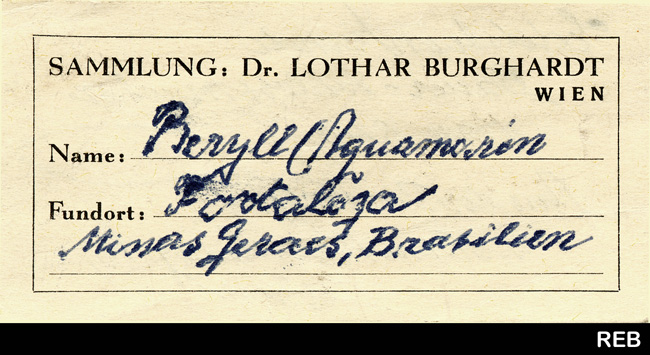 SAMMLUNG: Dr. LOTHAR BURGHARDT
WIEN
Name: Beryll (Aquamarin
Fundort: Fortaleza
Minas Geraes, Brasilien
REB